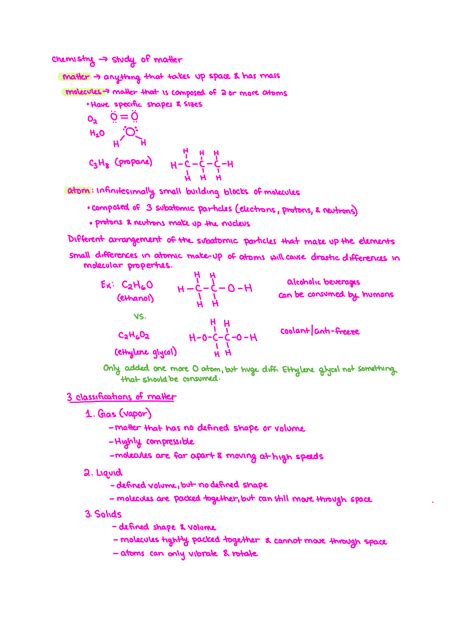 Chemistry → study of matter
matter → anything that takes up space & has mass
molecules → matter that is composed of 2 or more atoms
• Have specific shapes & sizes
O₂ O=O
H₂O O H H
C₃H₈ (propane) H-C-C-C-H H H H H H H
atom: infinitesimally small building blocks of molecules
• composed of 3 subatomic particles (electrons, protons, & neutrons)
• protons & neutrons make up the nucleus
Different arrangement of the subatomic particles that make up the elements
small differences in atomic make-up of atoms will cause drastic differences in
molecular properties.
Ex: C₂H₆O H-C-C-O-H H H H H alcoholic beverages
(ethanol) can be consumed by humans
vs.
C₂H₆O₂ H-O-C-C-O-H H H H H coolant/anti-freeze
(ethylene glycol)
Only added one more O atom, but huge diff. Ethylene glycol not something
that should be consumed.
3 classifications of matter
1. Gas (vapor)
- matter that has no defined shape or volume
- Highly compressible
- molecules are far apart & moving at high speeds
2. Liquid
- defined volume, but no defined shape
- molecules are packed together, but can still move through space
3. Solids
- defined shape & volume
- molecules tightly packed together & cannot move through space
- atoms can only vibrate & rotate